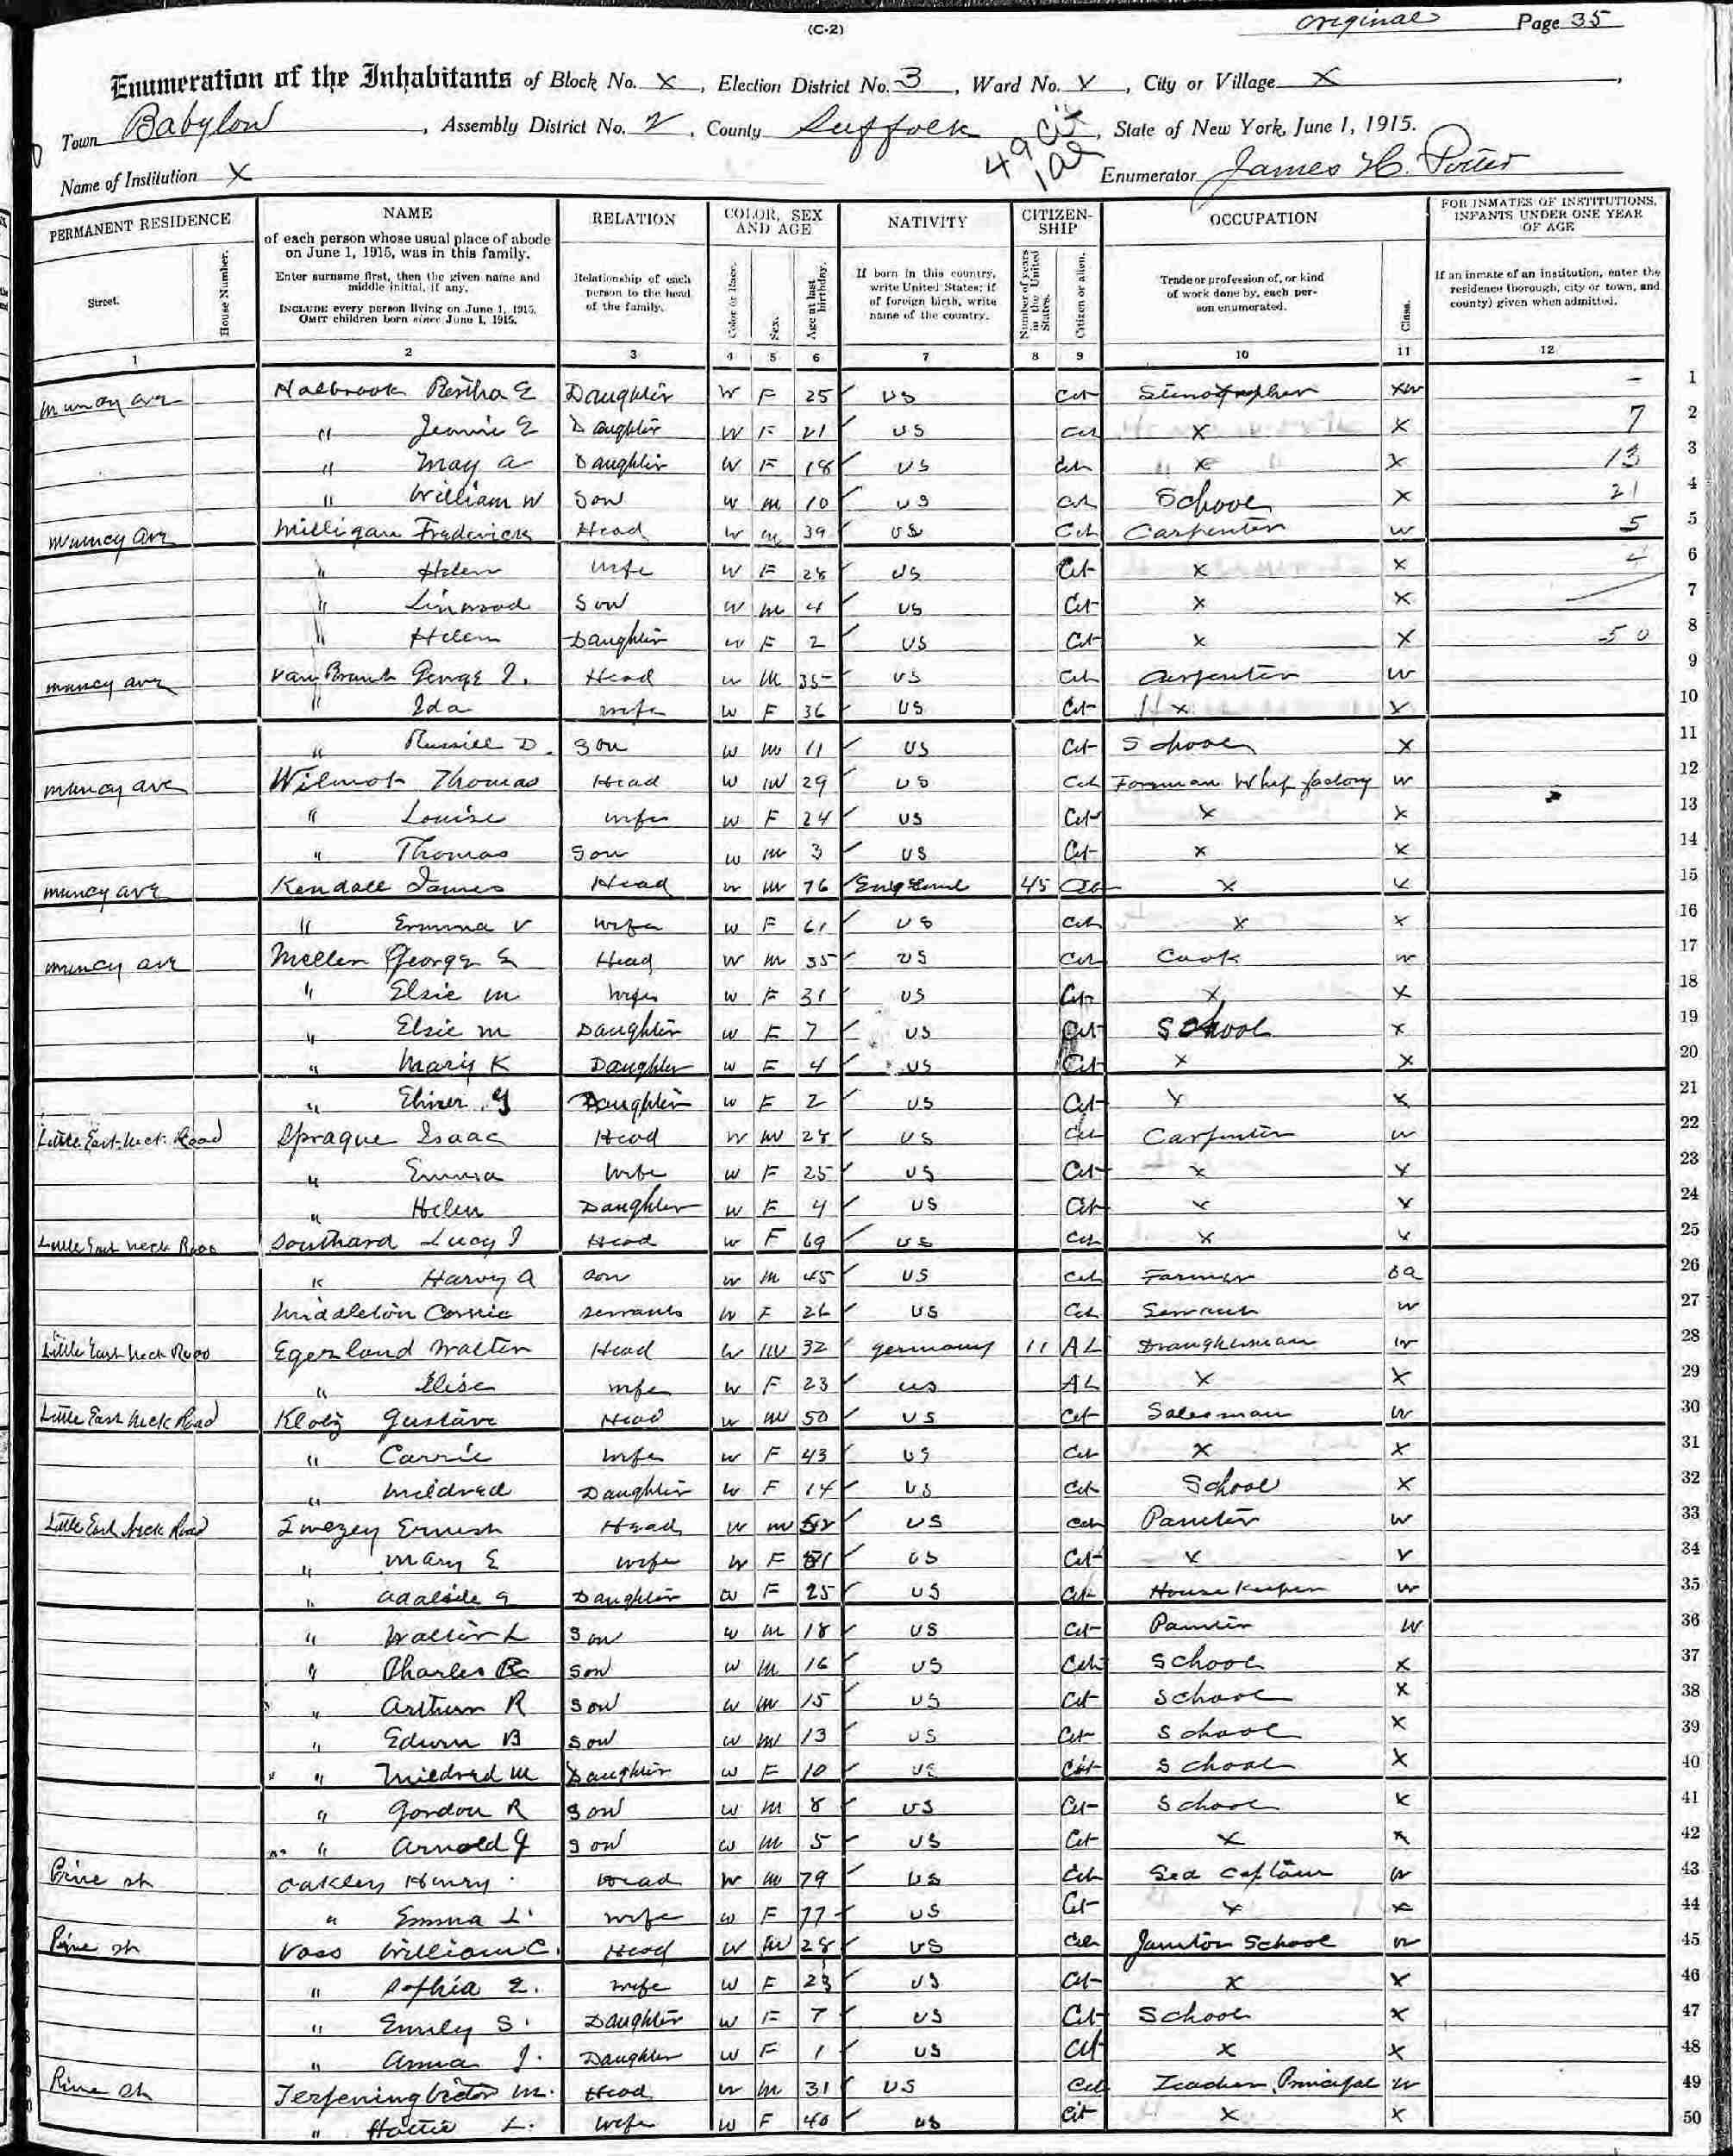 (C-2)
original Page 35
Enumeration of the Inhabitants of Block No. X, Election District No. 3, Ward No. X, City or Village X,
Town Babylon, Assembly District No. 2, County Suffolk, State of New York, June 1, 1915.
49 Cit
1 al
Name of Institution X Enumerator James H.
PERMANENT RESIDENCE NAME RELATION COLOR, SEX AND AGE NATIVITY CITIZEN-SHIP OCCUPATION FOR INMATES OF INSTITUTIONS, INFANTS UNDER ONE YEAR OF AGE
Street. House Number. of each person whose usual place of abode on June 1, 1915, was in this family. Enter surname first, then the given name and middle initial, if any. INCLUDE every person living on June 1, 1915. OMIT children born since June 1, 1915. Relationship of each person to the head of the family. Color or Race. Sex. Age at last birthday. If born in this country, write United States; if of foreign birth, write name of the country. Number of years in the United States. Citizen or alien. Trade or profession of, or kind of work done by, each person enumerated. Class. If an inmate of an institution, enter the residence (borough, city or town, and county) given when admitted.
1 2 3 4 5 6 7 8 9 10 11 12
Muncy ave Halbrook Bertha E Daughter W F 25 US Cit Stenographer W - 1
" Jennie E Daughter W F 21 US Cit X X 7 2
" May A Daughter W F 18 US Cit X X 13 3
" William W Son W M 10 US Cit School X 21 4
Muncy ave Milligan Frederick Head W M 39 US Cit Carpenter W 5 5
" Helen Wife W F 28 US Cit X X 4 6
" Linwood Son W M 4 US Cit X X 7
" Helen Daughter W F 2 US Cit X X 50 8
Muncy ave Van Brunt George I. Head W M 35 US Cit Carpenter W 9
" Ida Wife W F 36 US Cit X X 10
" Russell D. Son W M 11 US Cit School X 11
Muncy ave Wilmot Thomas Head W M 29 US Cit Forman Whip factory W 12
" Louise Wife W F 24 US Cit X X 13
" Thomas Son W M 3 US Cit X X 14
Muncy ave Kendall James Head W M 76 England 45 Cit X X 15
" Emma V Wife W F 61 US Cit X X 16
Muncy ave Mellen George E Head W M 35 US Cit Cook W 17
" Elsie M Wife W F 31 US Cit X X 18
" Elsie M Daughter W F 7 US Cit School X 19
" Mary K Daughter W F 4 US Cit X X 20
" G Daughter W F 2 US Cit X X 21
Little East Neck Road Sprague Isaac Head W M 28 US Cit Carpenter W 22
" Emma Wife W F 25 US Cit X X 23
" Helen Daughter W F 4 US Cit X X 24
Little East Neck Road Southard Lucy J Head W F 69 US Cit X X 25
" Harvy A Son W M 45 US Cit Farmer oa 26
Middleton Carrie Servants W F 26 US Cit Servant W 27
Little East Neck Road Egerland Walter Head W M 32 Germany 11 AL Draughtsman W 28
" Elise Wife W F 23 US AL X X 29
Little East Neck Road Gustave Head W M 50 US Cit Salesman W 30
" Carrie Wife W F 43 US Cit X X 31
" Mildred Daughter W F 14 US Cit School X 32
Little East Neck Road Swezey Ernest Head W M US Cit Painter W 33
" Mary E Wife W F US Cit X X 34
" Adalaide G Daughter W F 25 US Cit House Keeper W 35
" Walter L Son W M 18 US Cit Painter W 36
" Charles B Son W M 16 US Cit School X 37
" Arthur R Son W M 15 US Cit School X 38
" Edwin B Son W M 13 US Cit School X 39
" Mildred M Daughter W F 10 US Cit School X 40
" Gordon R Son W M 8 US Cit School X 41
" Arnold J Son W M 5 US Cit X X 42
Pine st Oakley Henry Head W M 79 US Cit Sea Captain W 43
" Emma L. Wife W F 77 US Cit X X 44
Pine st Voss William C. Head W M 28 US Cit Janitor School W 45
" Sophia E. Wife W F 23 US Cit X X 46
" Emily S. Daughter W F 7 US Cit School X 47
" Anna J. Daughter W F 1 US Cit X X 48
Pine st Terpening Victor M. Head W M 31 US Cit Teacher, Principal W 49
" Hattie L. Wife W F 40 US Cit X X 50